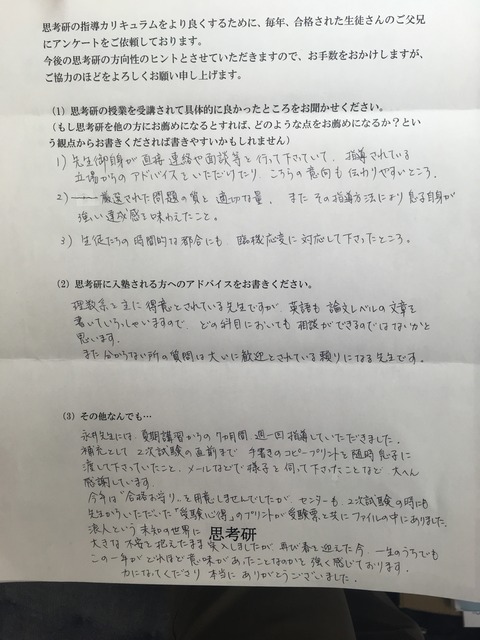 思考研の指導カリキュラムをより良くするために、毎年、合格された生徒さんのご父兄
にアンケートをご依頼しております。
今後の思考研の方向性のヒントとさせていただきますので、お手数をおかけしますが、
ご協力のほどをよろしくお願い申し上げます。
（1）思考研の授業を受講されて具体的に良かったところをお聞かせください。
（もし思考研を他の方にお薦めになるとすれば、どのような点をお薦めになるか？とい
う観点からお書きくだされば書きやすいかもしれません）
1) 先生御自身が直接連絡や面談等を行って下さっていて、指導されている
立場からのアドバイスをいただけたり、こちらの意向も伝わりやすいところ。
2) 厳選された問題の質と適切な量、またその指導方法により息子自身が
強い達成感を味わえたこと。
3) 生徒たちの時間的な都合にも、臨機応変に対応して下さったところ。
（2）思考研に入塾される方へのアドバイスをお書きください。
理数系を主に得意とされている先生ですが、英語も論文レベルの文章を
書いていらっしゃいますので、どの科目においても相談ができるのではないかと
思います。
また分からない所の質問は大いに歓迎とされている頼りになる先生です。
（3）その他なんでも…
永井先生には、夏期講習からの7ヶ月間、週一回指導していただきました。
補充として2次試験の直前まで手書きのコピープリントを随時息子に
渡して下さっていたこと、メールなどで様子を伺って下さったことなど大へん
感謝しています。
今年は"合格お守り"を用意しませんでしたが、センターも、2次試験の時にも
先生からいただいた「受験心得」のプリントが受験票と共にファイルの中にありました。
浪人という未知の世界に
思考研
大きな不安を抱えたまま突入しましたが再び春を迎えた今、一生のうちでも
この一年がどれほど意味があったことなのかを強く感じております。
力になってくださり本当にありがとうございました。